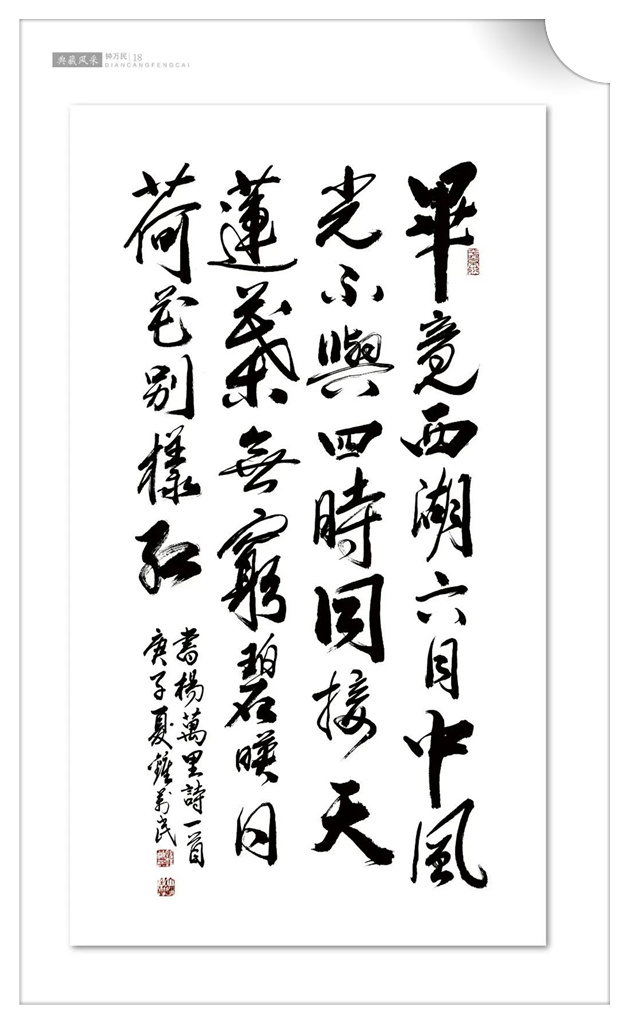 典藏风采 钟万民 | 18
DIANCANGFENGCAI
畢竟西湖六月中風
光不與四時同接天
蓮葉無窮碧暎日
荷花別樣紅
書楊萬里詩一首
庚子夏鍾萬民